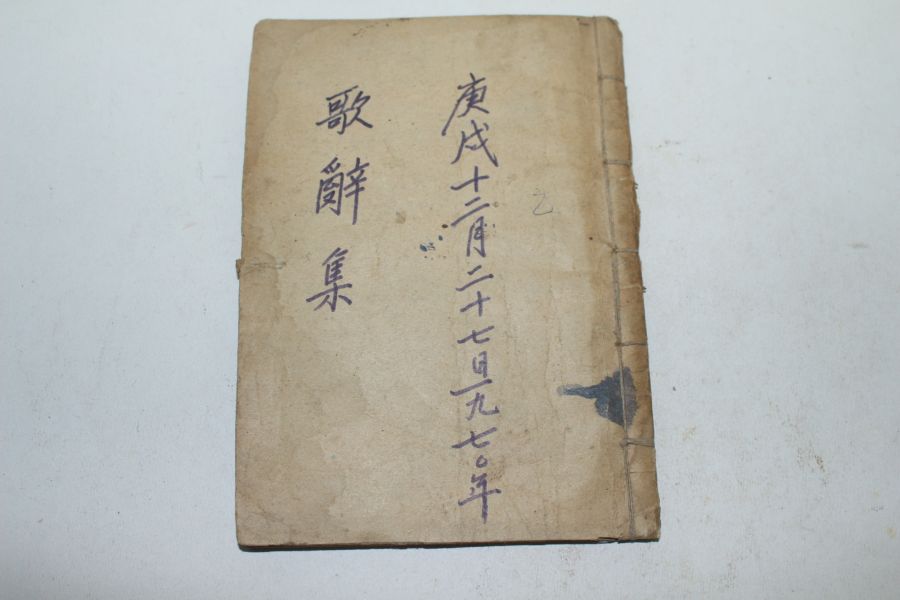 庚戌十二月二十七日一九七〇年
歌辭集